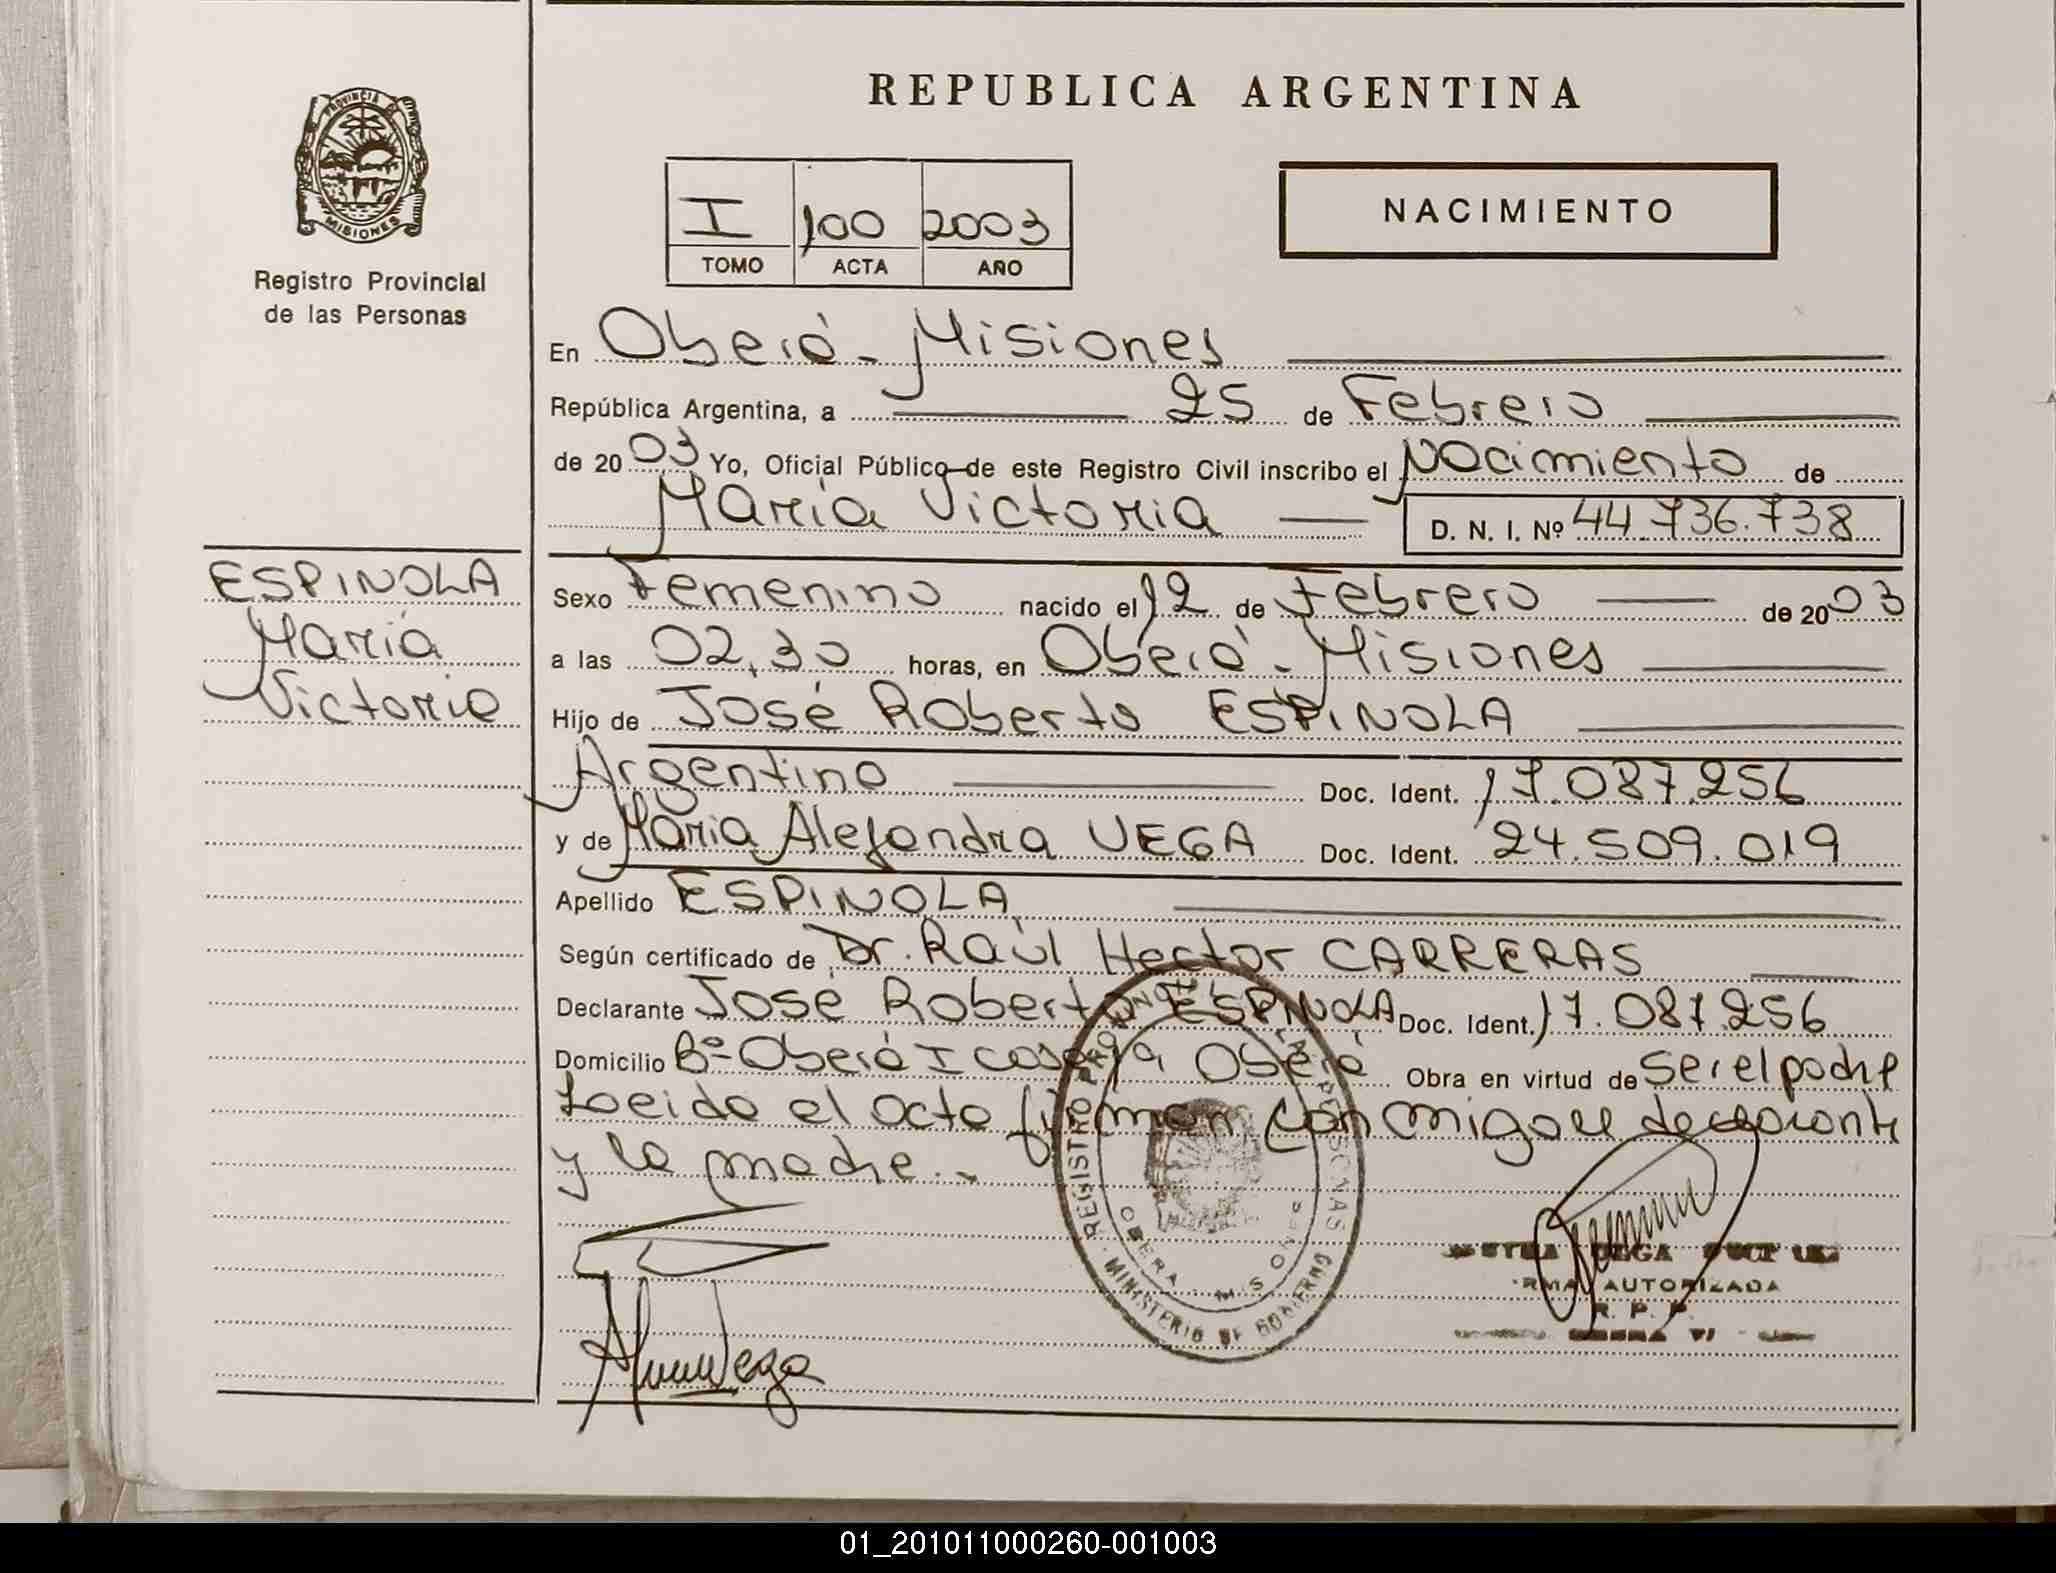 PROVINCIA DE
MISIONES
Registro Provincial
de las Personas
REPUBLICA ARGENTINA
I 100 2003
TOMO ACTA AÑO
NACIMIENTO
En Oberá - Misiones
República Argentina, a 25 de Febrero
de 2003 Yo, Oficial Público de este Registro Civil inscribo el Nacimiento de
María Victoria D. N. I. Nº 44.736.738
ESPINOLA
María
Victoria
Sexo Femenino nacido el 12 de Febrero de 2003
a las 02,30 horas, en Oberá - Misiones
Hijo de José Roberto ESPINOLA
Argentino Doc. Ident. 17.087.256
y de María Alejandra VEGA Doc. Ident. 24.509.019
Apellido ESPINOLA
Según certificado de Dr. Raúl Hector CARRERAS
Declarante José Roberto ESPINOLA Doc. Ident. 17.087.256
Domicilio Bº Oberá I casa Oberá Obra en virtud de ser el padre
Leido el acta firman conmigo el declarante
y la madre.-
REGISTRO PROVINCIAL DE LAS PERSONAS
OBERA - MISIONES
MINISTERIO DE GOBIERNO
Vega
AUTORIZADA
R. P. P.
01_201011000260-001003